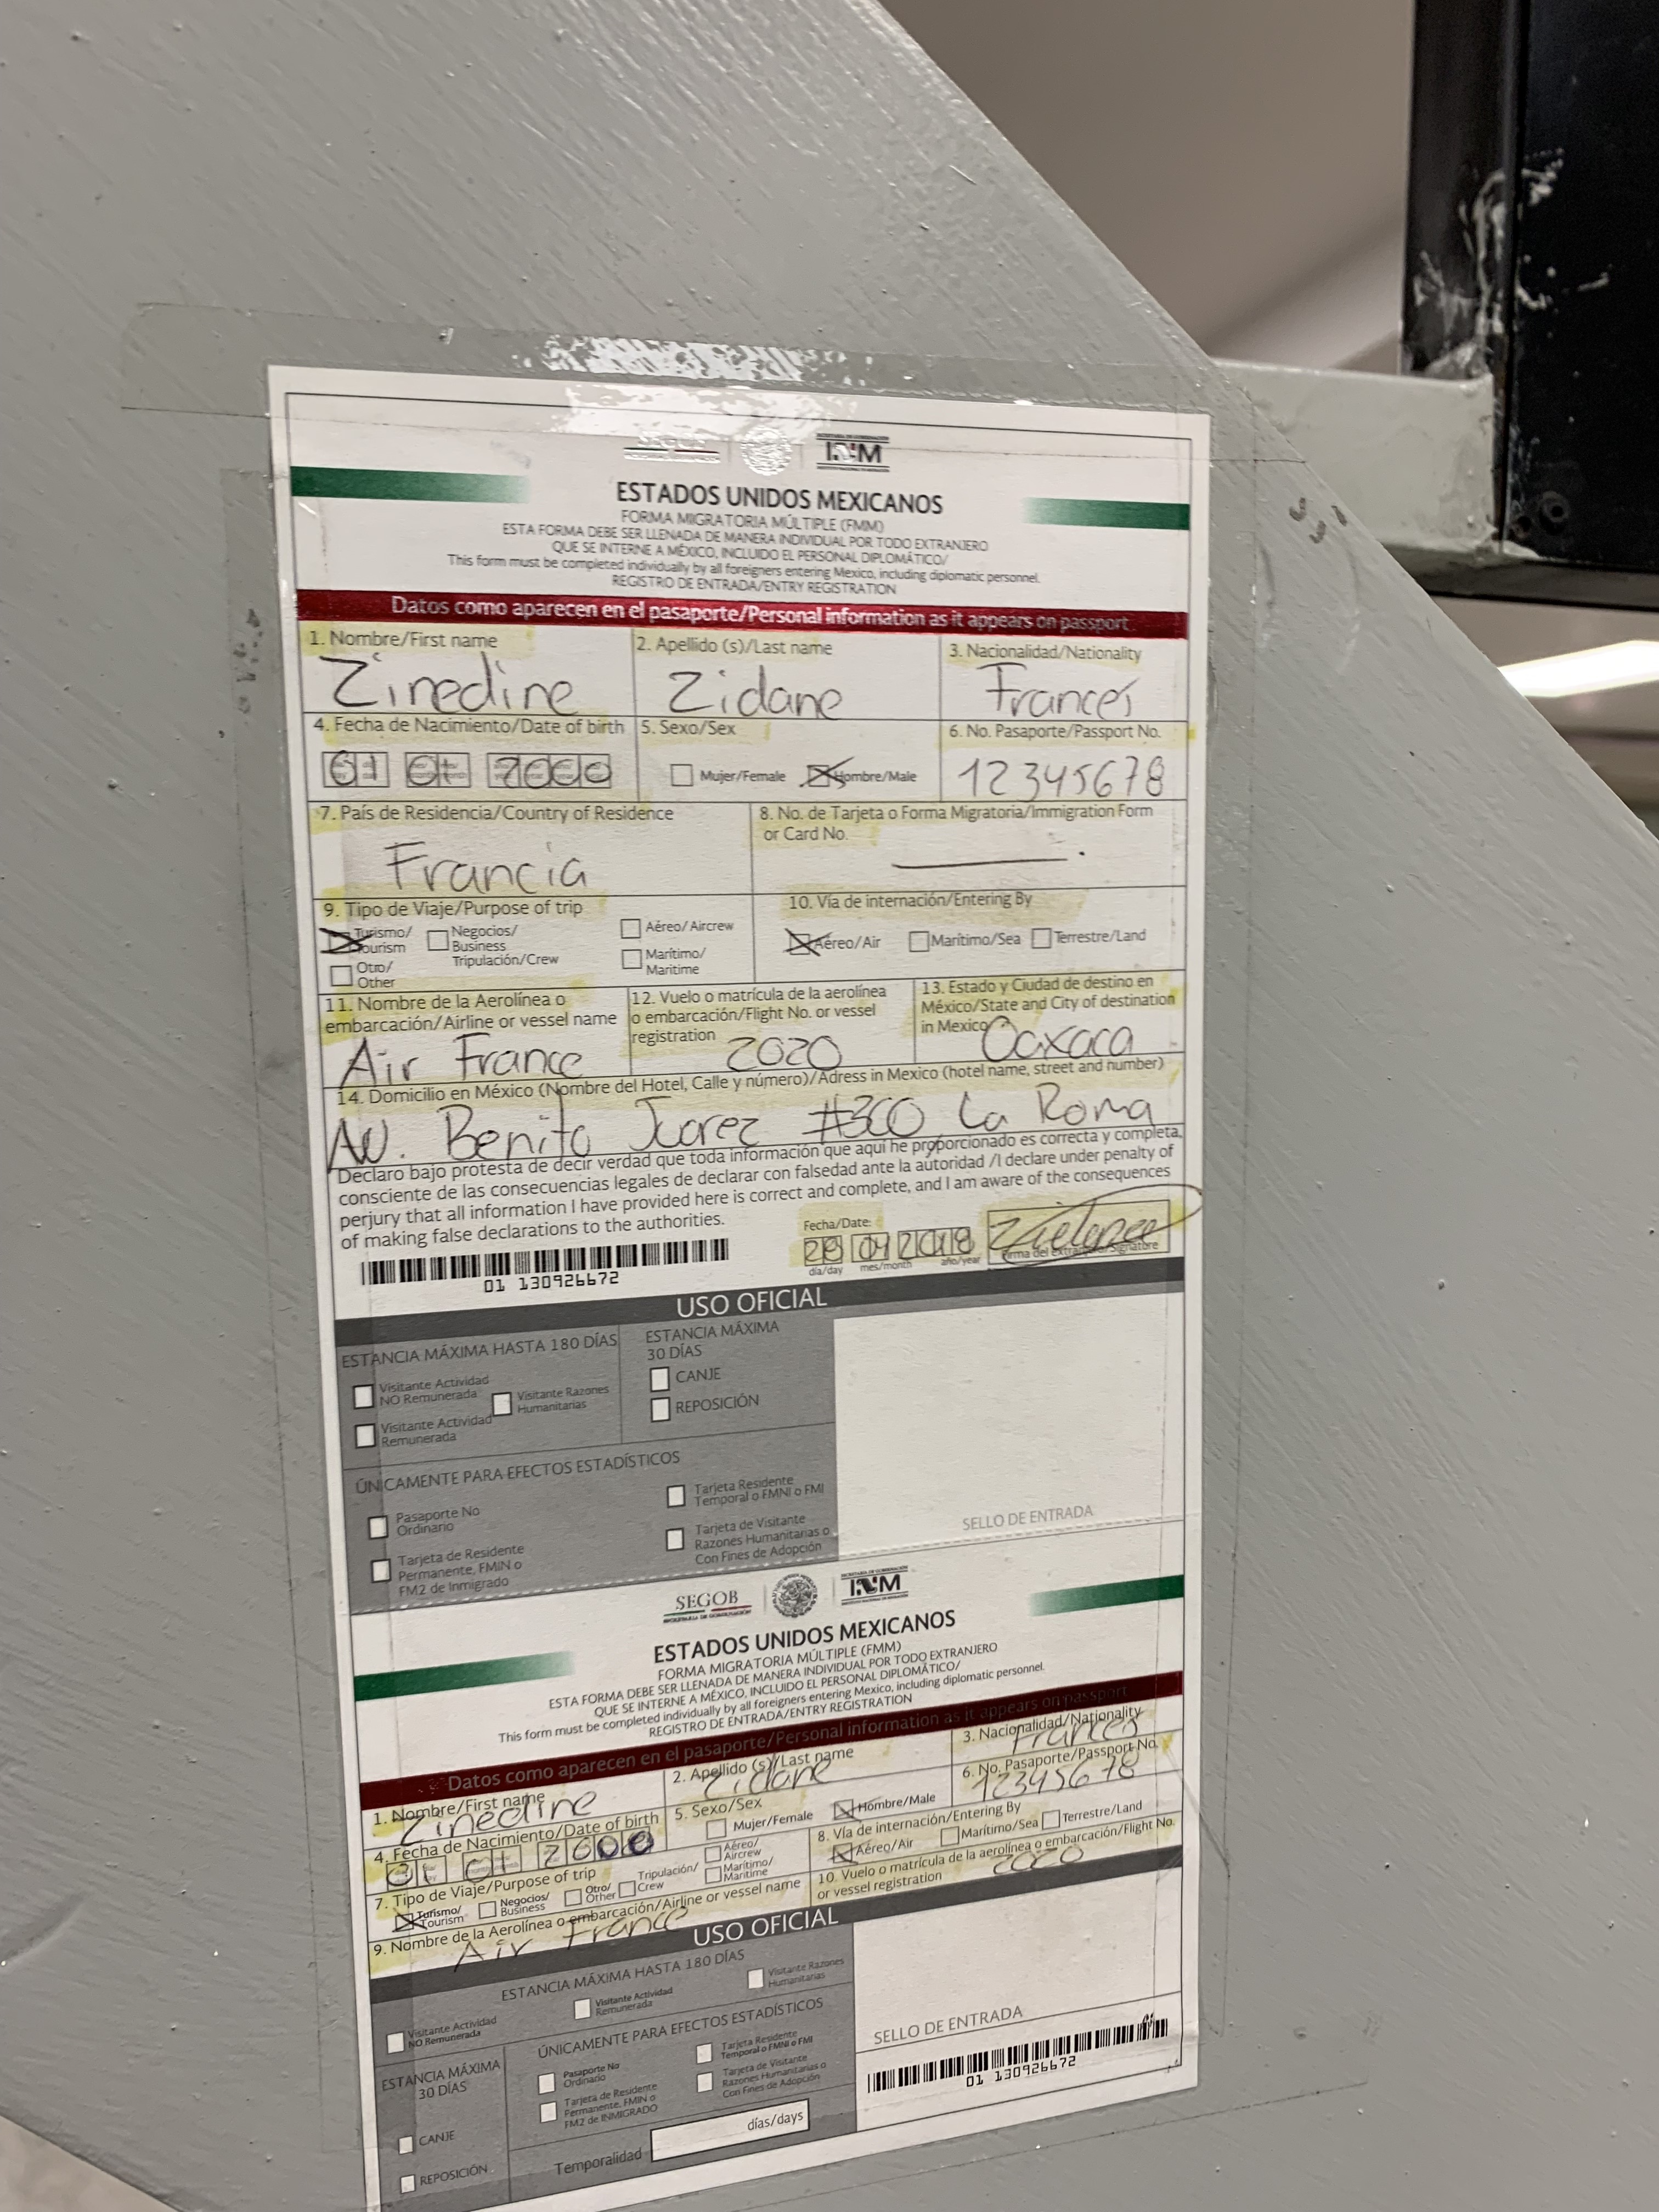 SEGOB
SECRETARÍA DE GOBERNACIÓN
INM
ESTADOS UNIDOS MEXICANOS
FORMA MIGRATORIA MÚLTIPLE (FMM)
ESTA FORMA DEBE SER LLENADA DE MANERA INDIVIDUAL POR TODO EXTRANJERO
QUE SE INTERNE A MÉXICO, INCLUIDO EL PERSONAL DIPLOMÁTICO/
This form must be completed individually by all foreigners entering Mexico, including diplomatic personnel.
REGISTRO DE ENTRADA/ENTRY REGISTRATION
Datos como aparecen en el pasaporte/Personal information as it appears on passport
1. Nombre/First name
Zinedine
2. Apellido (s)/Last name
Zidane
3. Nacionalidad/Nationality
Francés
4. Fecha de Nacimiento/Date of birth
01 01 2000
5. Sexo/Sex
Mujer/Female
Hombre/Male
6. No. Pasaporte/Passport No.
12345678
7. País de Residencia/Country of Residence
Francia
8. No. de Tarjeta o Forma Migratoria/Immigration Form
or Card No.
9. Tipo de Viaje/Purpose of trip
Turismo/
Tourism
Negocios/
Business
Tripulación/Crew
Aéreo/Aircrew
Otro/
Other
Marítimo/
Maritime
10. Vía de internación/Entering By
Aéreo/Air
Marítimo/Sea
Terrestre/Land
11. Nombre de la Aerolínea o
embarcación/Airline or vessel name
Air France
12. Vuelo o matrícula de la aerolínea
o embarcación/Flight No. or vessel
registration
2020
13. Estado y Ciudad de destino en
México/State and City of destination
in Mexico
Oaxaca
14. Domicilio en México (Nombre del Hotel, Calle y número)/Adress in Mexico (hotel name, street and number)
Av. Benito Juarez #300, La Roma
Declaro bajo protesta de decir verdad que toda información que aquí he proporcionado es correcta y completa,
consciente de las consecuencias legales de declarar con falsedad ante la autoridad /I declare under penalty of
perjury that all information I have provided here is correct and complete, and I am aware of the consequences
of making false declarations to the authorities.
Fecha/Date:
28 04 2018
día/day
mes/month
año/year
Zidane
Firma del extranjero/Signature
01 130926672
USO OFICIAL
ESTANCIA MÁXIMA HASTA 180 DÍAS
Visitante Actividad
NO Remunerada
Visitante Razones
Humanitarias
Visitante Actividad
Remunerada
ESTANCIA MÁXIMA
30 DÍAS
CANJE
REPOSICIÓN
ÚNICAMENTE PARA EFECTOS ESTADÍSTICOS
Pasaporte No
Ordinario
Tarjeta de Residente
Permanente, FMIN o
FM2 de Inmigrado
Tarjeta Residente
Temporal o FMNI o FMI
Tarjeta de Visitante
Razones Humanitarias o
Con Fines de Adopción
SELLO DE ENTRADA
SEGOB
SECRETARÍA DE GOBERNACIÓN
INM
ESTADOS UNIDOS MEXICANOS
FORMA MIGRATORIA MÚLTIPLE (FMM)
ESTA FORMA DEBE SER LLENADA DE MANERA INDIVIDUAL POR TODO EXTRANJERO
QUE SE INTERNE A MÉXICO, INCLUIDO EL PERSONAL DIPLOMÁTICO/
This form must be completed individually by all foreigners entering Mexico, including diplomatic personnel.
REGISTRO DE ENTRADA/ENTRY REGISTRATION
Datos como aparecen en el pasaporte/Personal information as it appears on passport
1. Nombre/First name
Zinedine
2. Apellido (s)/Last name
Zidane
3. Nacionalidad/Nationality
Francés
4. Fecha de Nacimiento/Date of birth
01 01 2000
5. Sexo/Sex
Mujer/Female
Hombre/Male
6. No. Pasaporte/Passport No.
12345678
7. Tipo de Viaje/Purpose of trip
Turismo/
Tourism
Negocios/
Business
Otro/
Other
Tripulación/
Crew
Aéreo/
Aircrew
Marítimo/
Maritime
8. Vía de internación/Entering By
Aéreo/Air
Marítimo/Sea
Terrestre/Land
9. Nombre de la Aerolínea o embarcación/Airline or vessel name
Air France
10. Vuelo o matrícula de la aerolínea o embarcación/Flight No.
or vessel registration
2020
USO OFICIAL
ESTANCIA MÁXIMA HASTA 180 DÍAS
Visitante Actividad
NO Remunerada
Visitante Actividad
Remunerada
Visitante Razones
Humanitarias
ESTANCIA MÁXIMA
30 DÍAS
CANJE
REPOSICIÓN
ÚNICAMENTE PARA EFECTOS ESTADÍSTICOS
Pasaporte No
Ordinario
Tarjeta de Residente
Permanente, FMIN o
FM2 de INMIGRADO
Tarjeta Residente
Temporal o FMNI o FMI
Tarjeta de Visitante
Razones Humanitarias o
Con Fines de Adopción
Temporalidad
días/days
SELLO DE ENTRADA
01 130926672